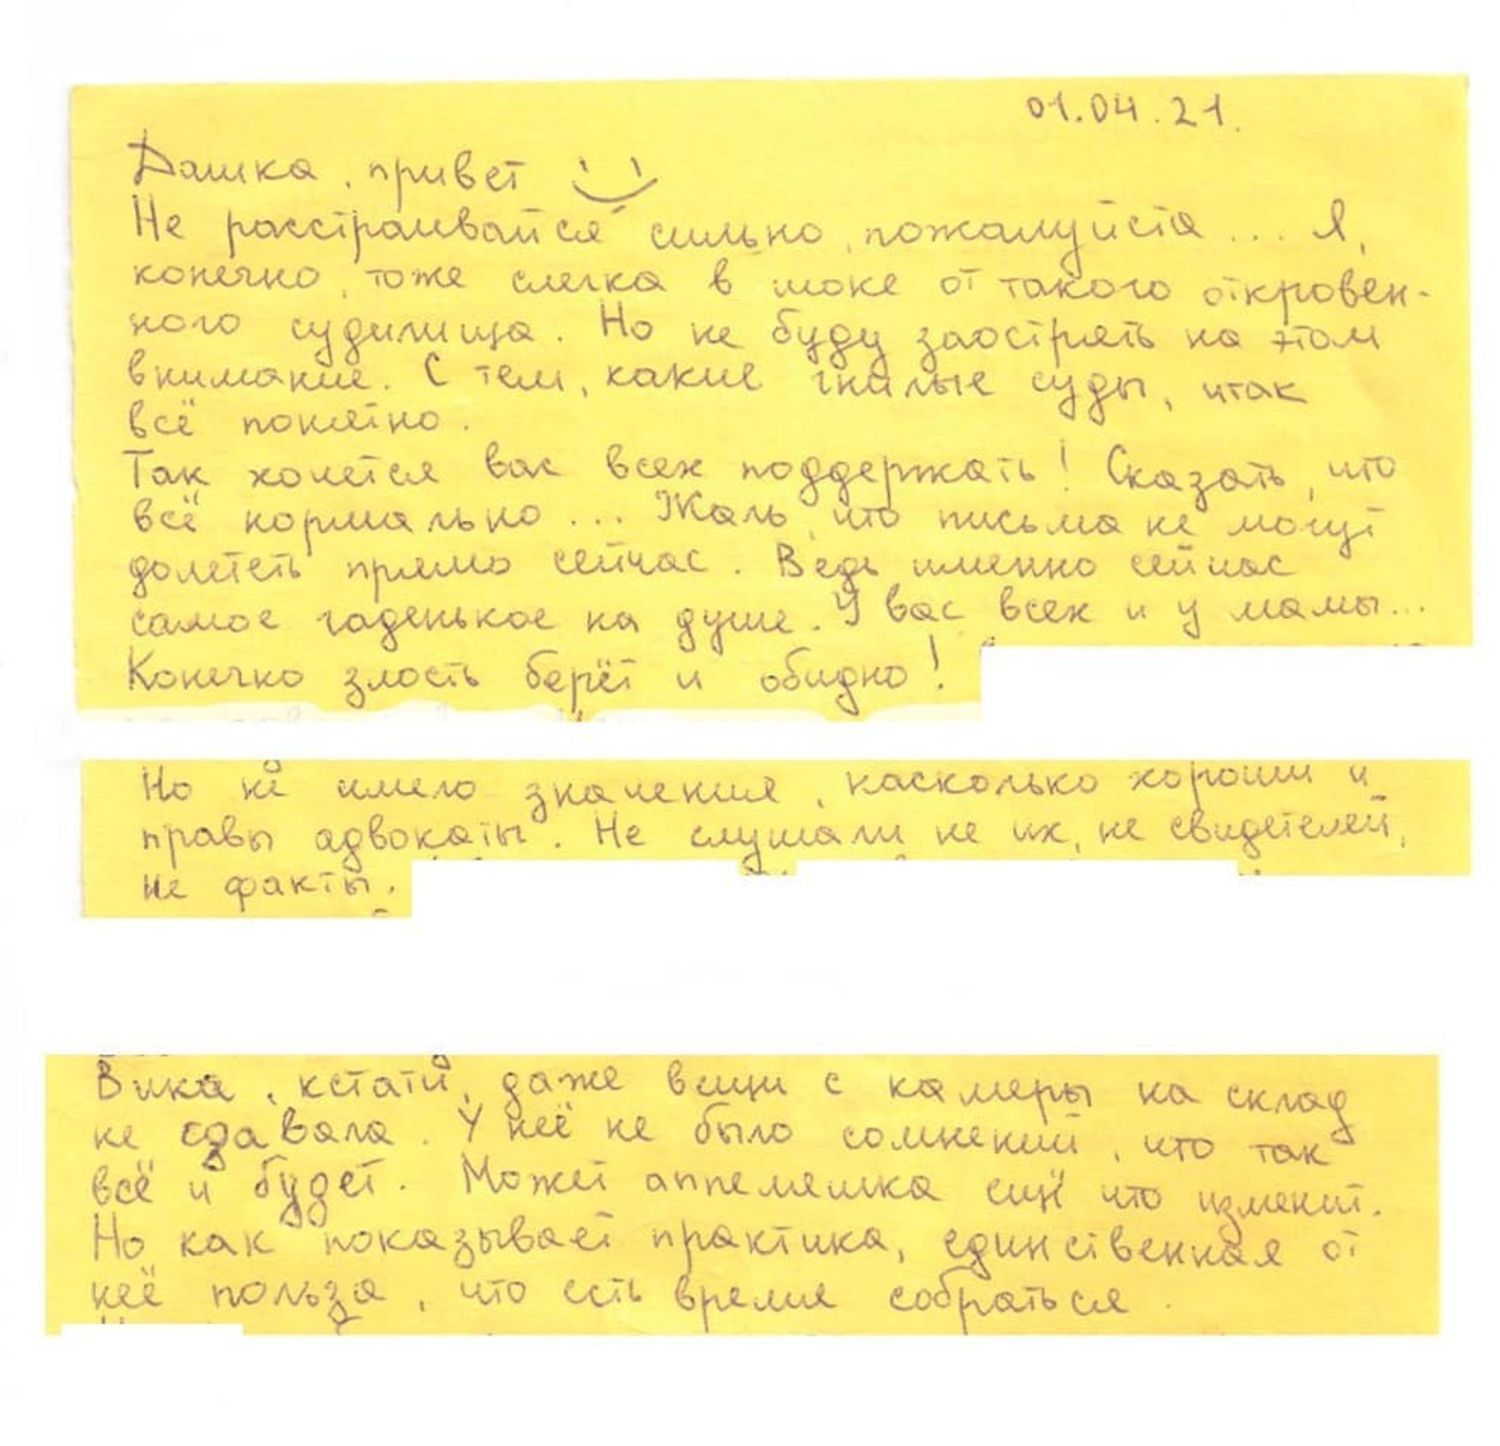 01.04.21.
Дашка, привет
Не расстраивайся сильно, пожалуйста... Я,
конечно, тоже слегка в шоке от такого откровен-
ного судилища. Но не буду заострять на этом
внимание. С тем, какие гнилые суды, итак
всё понятно.
Так хочется вас всех поддержать! Сказать, что
всё нормально... Жаль, что письма не могут
долететь прямо сейчас. Ведь именно сейчас
самое гаденькое на душе. У вас всех и у мамы...
Конечно злость берёт и обидно!
Но не имело значения, насколько хороши и
правы адвокаты. Не слушали не их, не свидетелей,
не факты.
Вика, кстати, даже вещи с камеры на склад
не сдавала. У неё не было сомнений, что так
всё и будет. Может аппеляшка ещё что изменит.
Но как показывает практика, единственная от
неё польза, что есть время собраться.